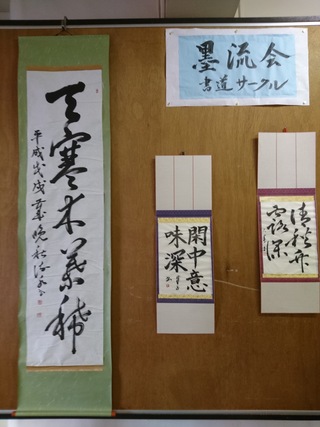 墨流会
書道サークル
天寒木葉稀
平成戊戌
晩秋
閑中意
味深
清秋
露深